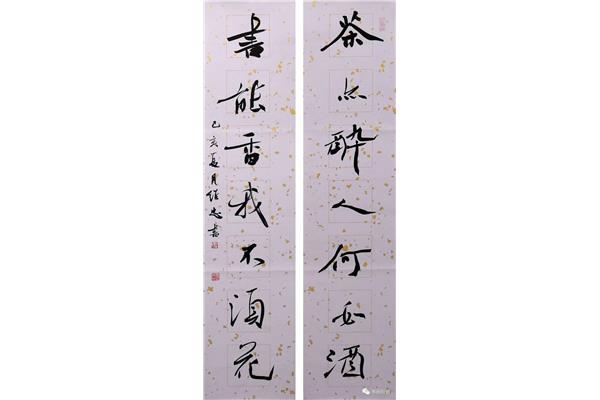 茶亦醉人何必酒
書能香我不須花
己亥夏月继忠書